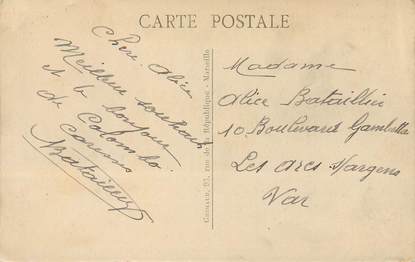 CARTE POSTALE
Chère Alice
Meilleur souhait
et le bonjour
de Colombo.
Caresses
Bataillier
GRIMAUD, 23, rue de la République - Marseille
Madame
Alice Bataillier
10. Boulevard Gambetta
Les Arcs s/Argens
Var